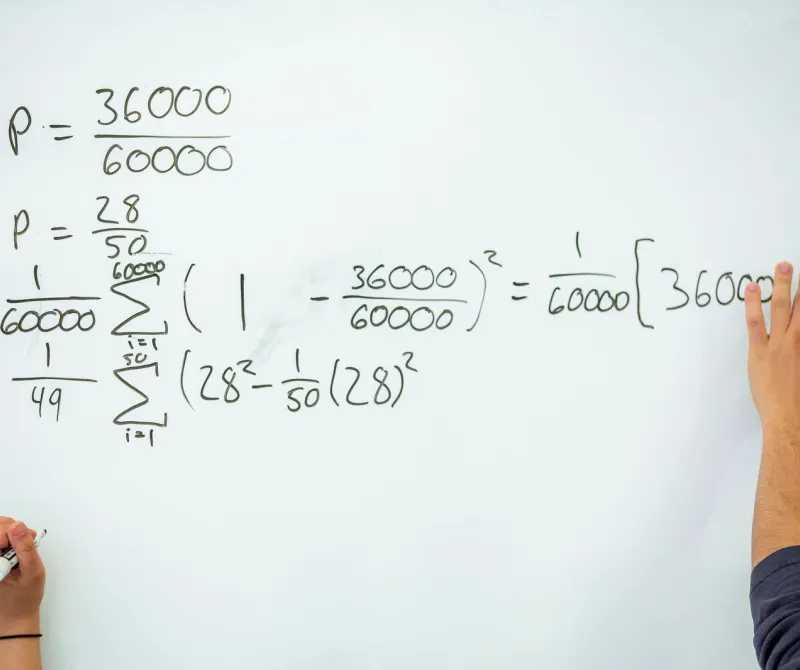 P = 36000/60000
P = 28/50
1/60000 ∑_{i=1}^{60000} ( 1 - 36000/60000 )² = 1/60000 [ 36000
1/49 ∑_{i=1}^{50} (28² - 1/50 (28)²